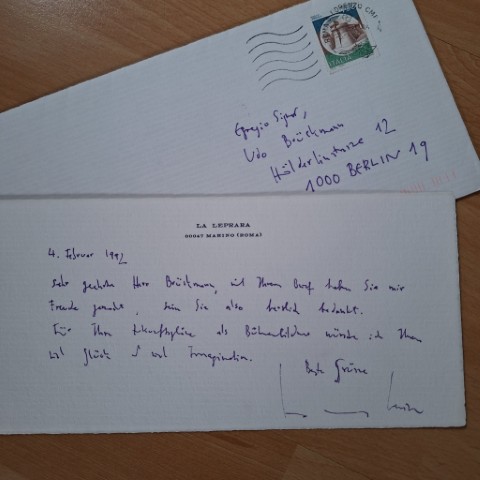 ITALIA
Egregio Signor,
Udo Brückmann
Hölderlinstrasse 12
1000 BERLIN 19
LA LEPRARA
00047 MARINO (ROMA)
4. Februar 1992
Sehr geehrter Herr Brückmann, mit Ihrem Brief haben Sie mir
Freude gemacht, seien Sie also herzlich bedankt.
Für Ihre Zukunftspläne als Bühnenbildner wünsche ich Ihnen
viel Glück und viel Imagination.
Beste Grüsse